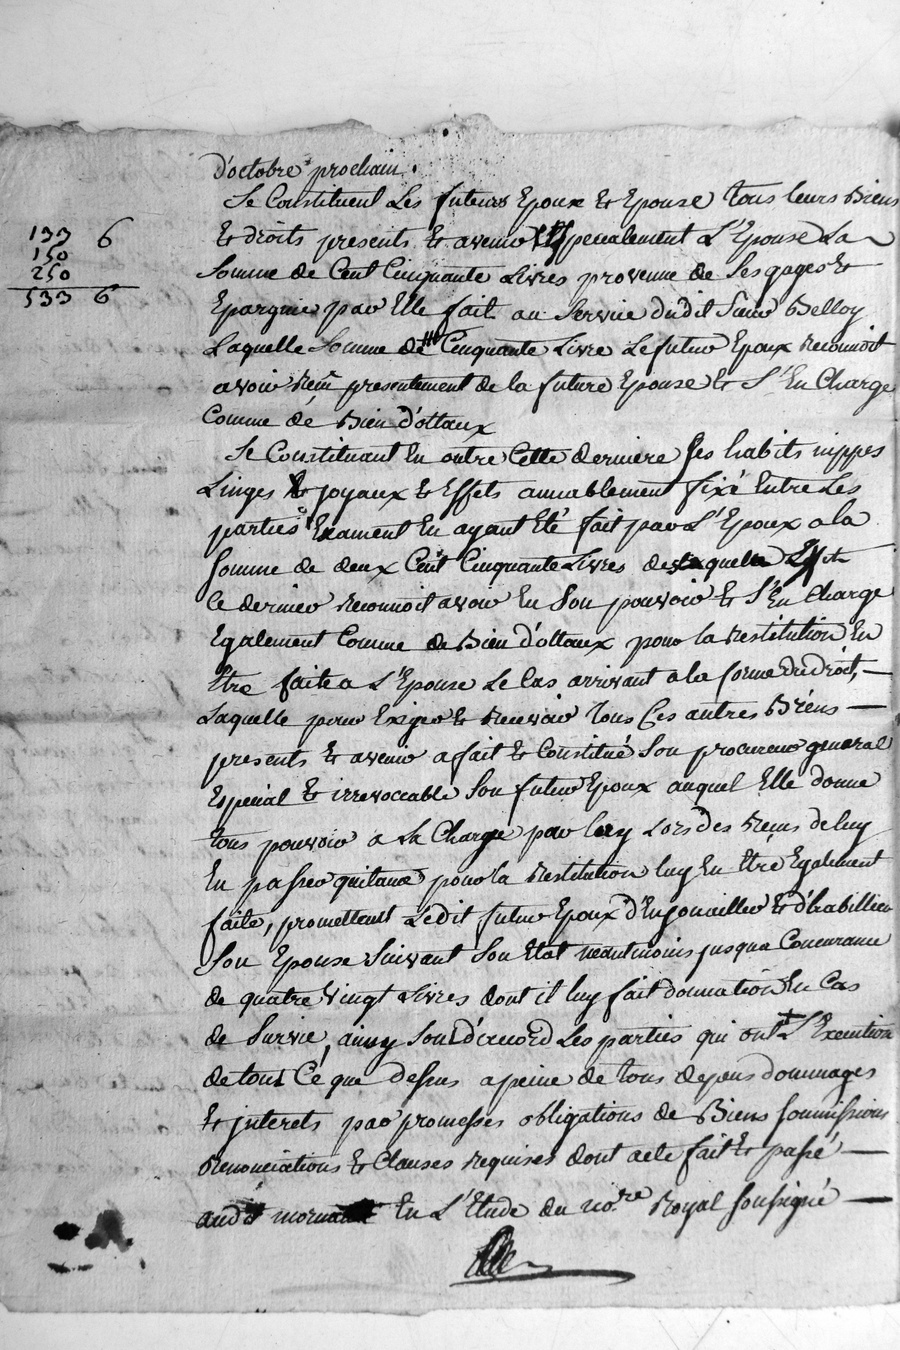 d'octobre prochain.
Se Constituent Les futeurs Epoux Et Epouse tous leurs Biens
133 6
Et droits presents Et avenir Specialement L'Epouse La
150
250
Somme de Cent Cinquante Livres provenue de Ses gages Et
533 6
Epargnie par Elle fait au Service dudit Sieur Belloy
Laquelle Somme de Cinquante Livre Le futur Epoux reconnoit
avoir reçu presentement de la future Epouse Et S'En Charge
Comme de Bien d'ottaux
Se Constituant En outre Cette derniere Ses habits nippes
Linges Et joyaux Et Effets amiablement fixé Entre Les
parties Exament En ayant Eté fait par L'Epoux a la
Somme de deux Cent Cinquante Livres de laquelle
Ce dernier reconnoit avoir En Son pouvoir Et S'En Charge
Egalement Comme de Bien d'ottaux pour la restitution En
Etre faite a L'Epouse Le Cas arrivant a la forme du droit,
Laquelle pour Exiger Et recevoir tous Ces autres Biens
presents Et avenir a fait Et Constitué Son procureur general
Espécial Et irrevocable Son futur Epoux auquel Elle donne
tous pouvoir a la Charge par luy Lors des reçus de luy
En passer quitance pour la restitution luy En Etre Egalement
faite, promettent Ledit futur Epoux d'Enjouailler Et d'habillier
Son Epouse Suivant Son Etat neantmoins jusqua Concurance
de quatre Vingt Livres dont il luy fait donnation En Cas
de Survie, ainsy Sont d'acord Les parties qui ont L'Execution
de tout Ce que dessus a peine de tous depens dommages
Et jnterets par promesses obligations de Biens Soumissions
renonciations Et Clauses requises dont acte fait Et passé
audit mornant En L'Etude du no.re Royal Soussigné